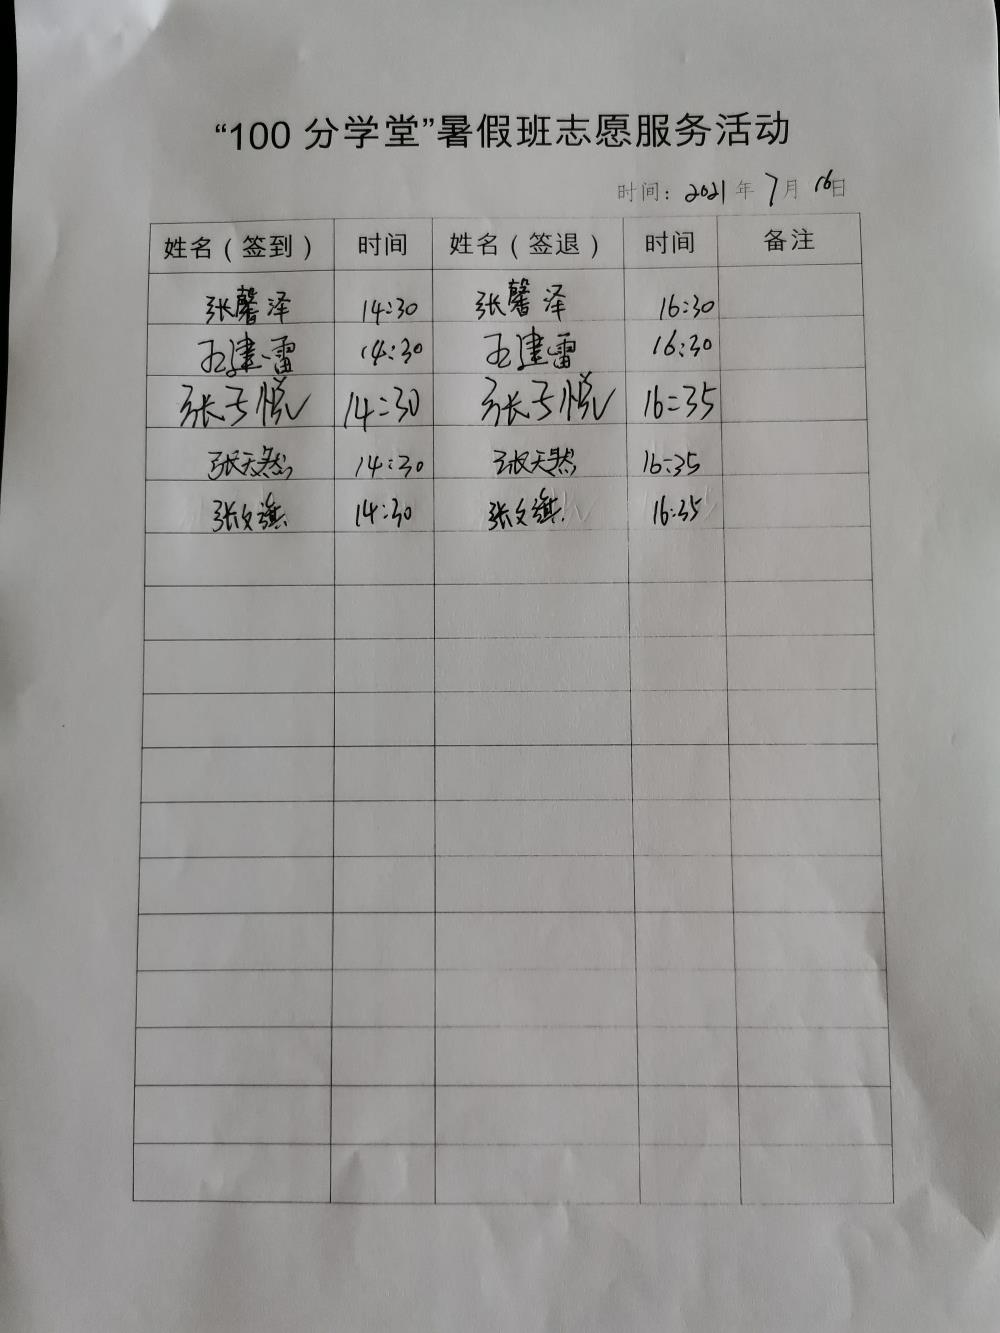 “100 分学堂”暑假班志愿服务活动
时间：2021 年 7 月 16 日
姓名（签到） 时间 姓名（签退） 时间 备注
张馨泽 14:30 张馨泽 16:30
王建雷 14:30 王建雷 16:30
张于悦 14:30 张于悦 16:35
张天然 14:30 张天然 16:35
张文旗 14:30 张文旗 16:35